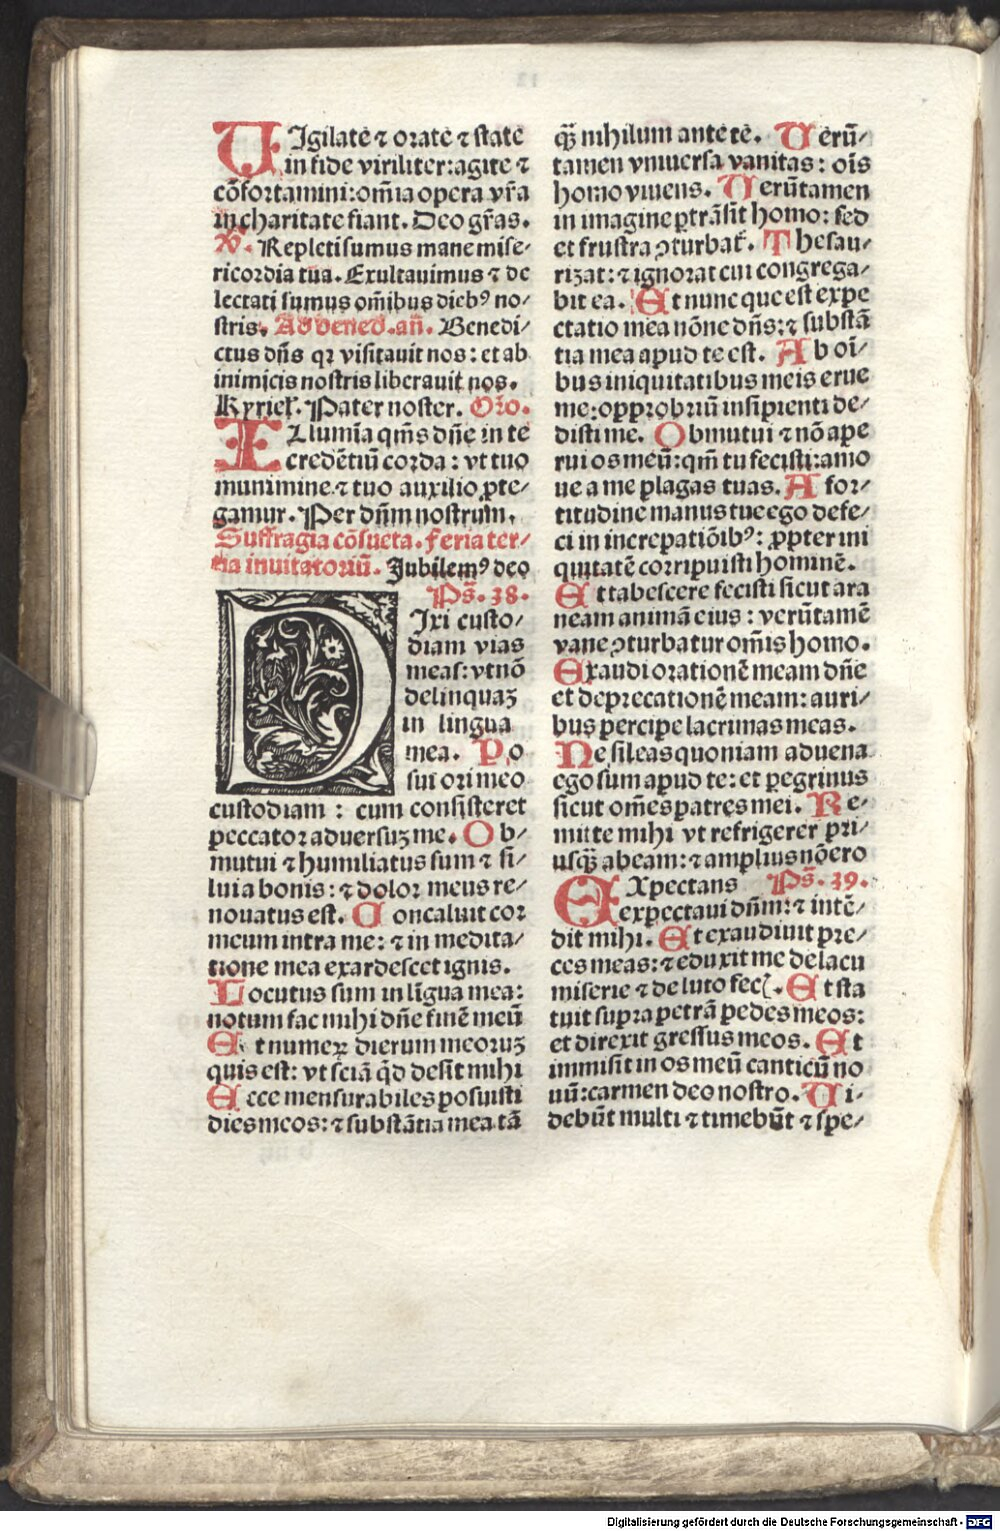 UIgilate ⁊ orate ⁊ state
in fide viriliter: agite ⁊
cōfortamini: om̄ia opera vr̄a
in charitate fiant. Deo gr̄as.
℣. Repleti sumus mane mise⸗
ricordia tua. Exultauimus ⁊ de
lectati sumus om̄ibus diebꝰ no⸗
stris. Ad bened. an̄. Benedi⸗
ctus dn̄s qꝛ visitauit nos: et ab
inimicis nostris liberauit nos.
Kyriel̄. Pater noster. Oꝛo.
ILlumīa qm̄s dn̄e in te
credētiū corda: vt tuo
munimine ⁊ tuo auxilio ꝓte⸗
gamur. Per dn̄m nostrum.
Suffragia cōsueta. Feria ter⸗
tia inuitatoriū. Jubilemꝰ deo
Ps̄. 38.
DIxi custo⸗
diam vias
meas: vt nō
delinquaꝫ
in lingua
mea. Po
sui ori meo
custodiam: cum consisteret
peccator aduersuꝫ me. Ob⸗
mutui ⁊ humiliatus sum ⁊ si⸗
lui a bonis: ⁊ dolor meus re⸗
nouatus est. Concaluit cor
meum intra me: ⁊ in medita⸗
tione mea exardescet ignis.
Locutus sum in līgua mea:
notum fac mihi dn̄e finē meū
Et numeꝝ dierum meoruꝫ
quis est: vt sciā qd̄ desit mihi
Ecce mensurabiles posuisti
dies meos: ⁊ substātia mea tā
qꝫ̄ nihilum ante te. Uerū⸗
tamen vniuersa vanitas: oīs
homo viuens. Uerūtamen
in imagine ꝑtrāsit homo: sed
et frustra ꝯturbat̄. Thesau⸗
rizat: ⁊ ignorat cui congrega⸗
bit ea. Et nunc que est expe
ctatio mea nōne dn̄s: ⁊ substā
tia mea apud te est. Ab oī⸗
bus iniquitatibus meis erue
me: opprobriū insipienti de⸗
disti me. Obmutui ⁊ nō ape
rui os meū: qm̄ tu fecisti: amo
ue a me plagas tuas. A for⸗
titudine manus tue ego defe⸗
ci in increpatiōibꝰ: ꝓpter ini
quitatē corripuisti hominē.
Et tabescere fecisti sicut ara
neam animā eius: verūtamē
vane ꝯturbatur om̄is homo.
Exaudi orationē meam dn̄e
et deprecationē meam: auri⸗
bus percipe lacrimas meas.
Ne sileas quoniam aduena
ego sum apud te: et ꝑegrinus
sicut om̄es patres mei. Re⸗
mitte mihi vt refrigerer pri⸗
usqꝫ̄ abeam: ⁊ amplius nō ero
EXpectans Ps̄. 39.
expectaui dn̄m: ⁊ intē⸗
dit mihi. Et exaudiuit pre⸗
ces meas: ⁊ eduxit me de lacu
miserie ⁊ de luto fecꝭ. Et sta
tuit supra petrā pedes meos:
et direxit gressus meos. Et
immisit in os meū canticū no
uū: carmen deo nostro. Ui⸗
debūt multi ⁊ timebūt ⁊ spe⸗
Digitalisierung gefördert durch die Deutsche Forschungsgemeinschaft - DFG